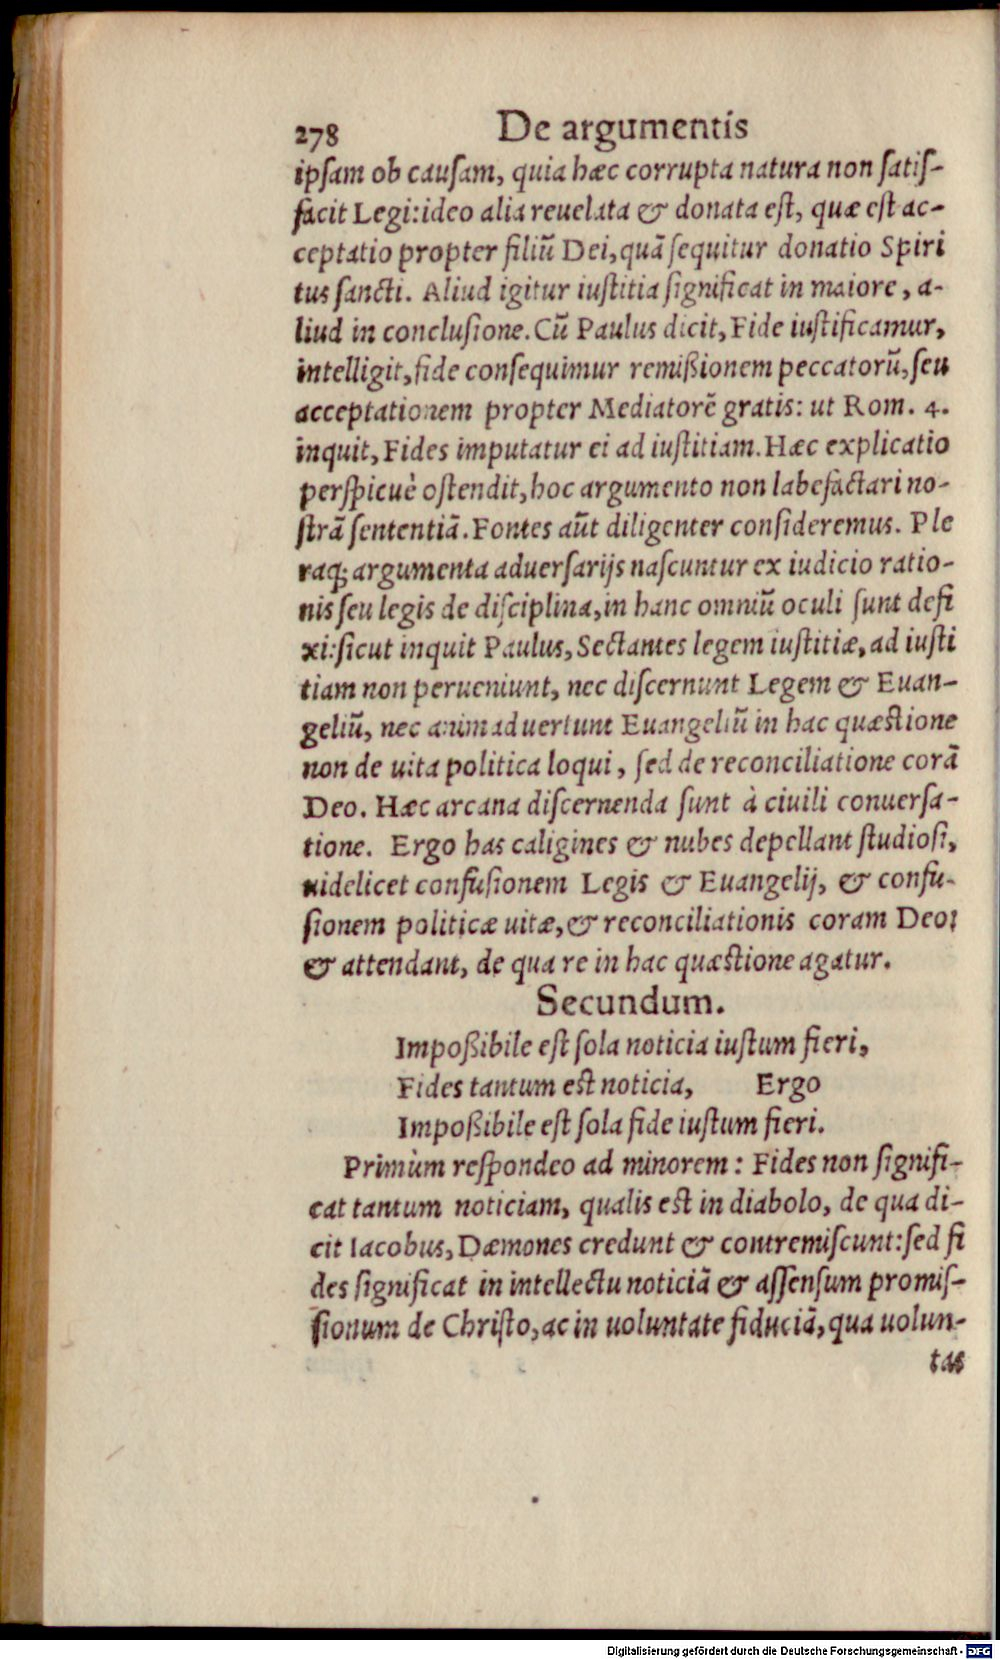 278 De argumentis
ipſam ob cauſam, quia hæc corrupta natura non ſatiſ-
facit Legi: ideo alia reuelata & donata eſt, quæ eſt ac-
ceptatio propter filiũ Dei, quã ſequitur donatio Spiri
tus ſancti. Aliud igitur iuſtitia ſignificat in maiore, a-
liud in concluſione. Cũ Paulus dicit, Fide iuſtificamur,
intelligit, fide conſequimur remißionem peccatorũ, ſeu
acceptationem propter Mediatorẽ gratis: ut Rom. 4.
inquit, Fides imputatur ei ad iuſtitiam. Hæc explicatio
perſpicuè oſtendit, hoc argumento non labefactari no-
ſtrã ſententiã. Fontes aũt diligenter conſideremus. Ple
raq; argumenta aduerſarijs naſcuntur ex iudicio ratio-
nis ſeu legis de diſciplina, in hanc omniũ oculi ſunt defi
xi: ſicut inquit Paulus, Sectantes legem iuſtitiæ, ad iuſti
tiam non perueniunt, nec diſcernunt Legem & Euan-
geliũ, nec animaduertunt Euangeliũ in hac quæſtione
non de uita politica loqui, ſed de reconciliatione corã
Deo. Hæc arcana diſcernenda ſunt à ciuili conuerſa-
tione. Ergo has caligines & nubes depellant ſtudioſi,
uidelicet confuſionem Legis & Euangelij, & confu-
ſionem politicæ uitæ, & reconciliationis coram Deo:
& attendant, de qua re in hac quæſtione agatur.
Secundum.
Impoßibile eſt ſola noticia iuſtum fieri,
Fides tantum eſt noticia, Ergo
Impoßibile eſt ſola fide iuſtum fieri.
Primùm reſpondeo ad minorem: Fides non ſignifi-
cat tantum noticiam, qualis eſt in diabolo, de qua di-
cit Iacobus, Dæmones credunt & contremiſcunt: ſed fi
des ſignificat in intellectu noticiã & aſſenſum promiſ-
ſionum de Chriſto, ac in uoluntate fiduciã, qua uolun-
tas
Digitalisierung gefördert durch die Deutsche Forschungsgemeinschaft - DFG